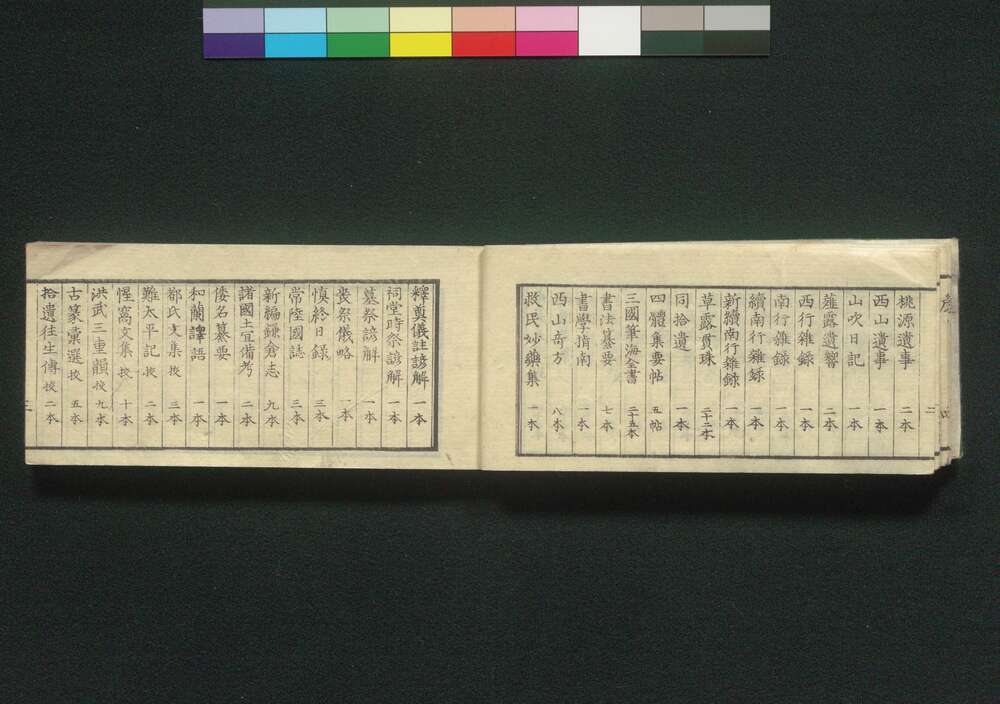 桃源遺事 二本
西山遺事 一本
山吹日記 一本
薤露遺響 二本
西行雜錄 一本
南行雜錄 一本
續南行雜錄 一本
新續南行雜錄 一本
草露貫珠 二十二本
同拾遺 一本
四體集要帖 五帖
三國筆海全書 二十五本
書法纂要 七本
書學指南 一本
西山奇方 八本
救民妙藥集 一本
釋奠儀註諺解 一本
祠堂時祭諺解 一本
墓祭諺解 一本
喪祭儀略 一本
愼終日錄 三本
常陸國誌 三本
新編鎌倉志 九本
諸國土宜備考 二本
倭名纂要 一本
和蘭譯語 一本
都氏文集 挍 三本
難太平記 挍 二本
惺窩文集 挍 十本
洪武三重韻 挍 九本
古篆彙選 挍 五本
拾遺往生傳 挍 二本
三